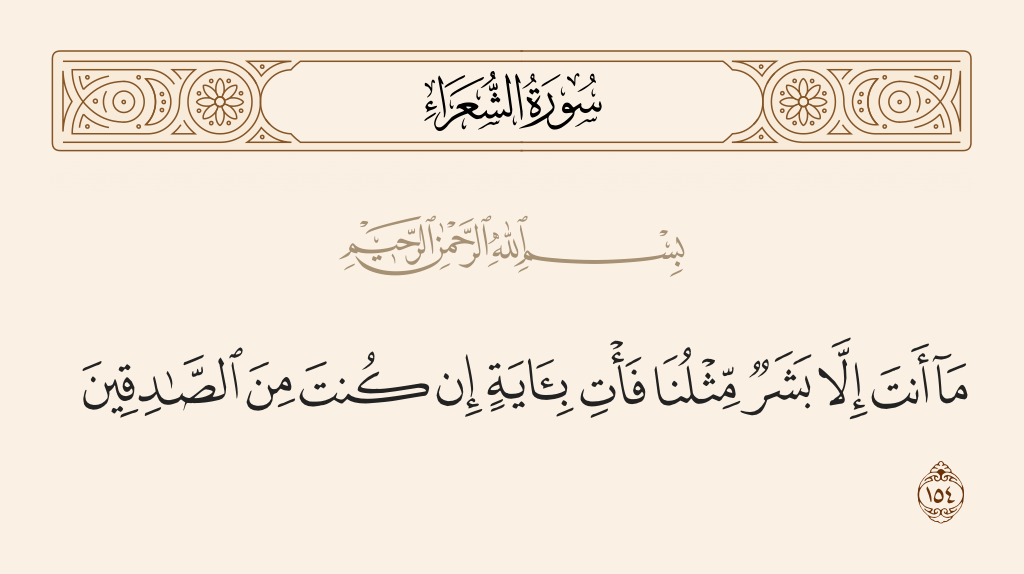 سُورَةُ الشُّعَرَاءِ
بِسْمِ ٱللَّهِ ٱلرَّحْمَٰنِ ٱلرَّحِيمِ
مَآ أَنتَ إِلَّا بَشَرٌ مِّثْلُنَا فَأْتِ بِـَٔايَةٍ إِن كُنتَ مِنَ ٱلصَّـٰدِقِينَ
١٥٤